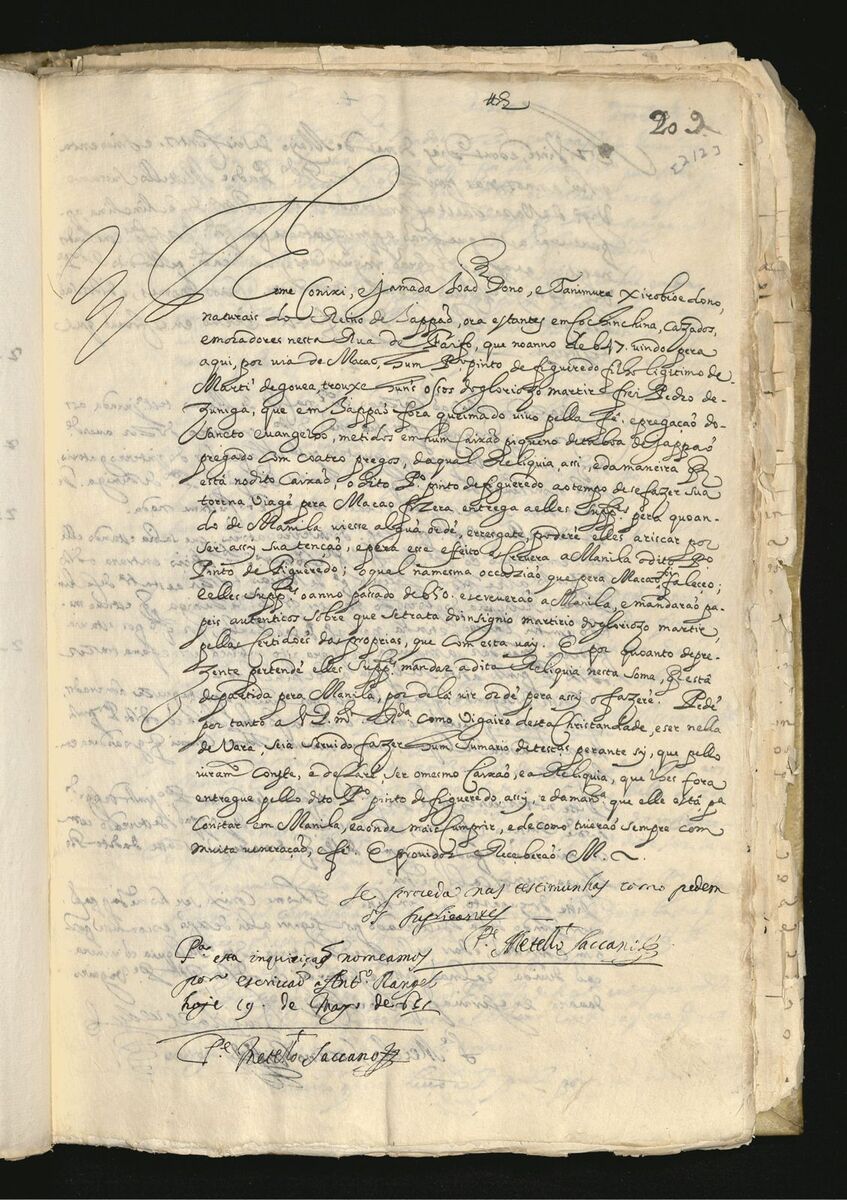 209
E2123
eme Conixi, e Jamada Joaõ Dono, e Tanimura Xirobioe dono,
naturais do Reino de Jappaõ, ora estantes em Cochinchina, Cazados,
e moradores nesta Rua de Faifo, que no anno de 647. vindo pera
aqui, por via de Macao, hum Po. pinto de figueredo filho legitimo de
Marti' de gouea, trouxe huns ossos do glorioso martire frei Pedro de
zuniga, que em Jappaõ fora queimado vivo pella fe. e pregação do
Sancto evangelho, metidos em hum Caixaõ piqueno de taboa de Jappaõ
pregado com coatro pregos, da qual Reliquia, assi, e da maneira q
está no dito Caixaõ, o dito Po. pinto de figueredo ao tempo de se fazer sua
torna viagē pera Macao fizera entrega a elles Suppes. pera quoan-
do de Manila viesse algũa ordē, e rresgate, podere elles ariscar por
ser assy sua tençaõ, e pera esse efeito escreuera a Manila o dito Po
Pinto de figueredo; o qual na mesma occaziaõ que pera Macao foj faleçeo;
e elles Suppes. o anno passado de 650. escreueraõ a Manila, e mandaraõ pa-
peis autenticos sobre que se trata do insignio martirio do glorioso martir,
pellas sertidoẽs das proprias, que com esta vaj. E por quoanto de pre-
zente pertendē elles Suppes. mandar a dita Reliquia nesta soma, q está
de partida pera Manila, por de la vir ordē pera assy o fazerē. Pedē
por tanto a V. P. mt. Rda. como Vigairo desta Christandade, e ser nella
de Vara, seia servido fazer hum sumario de testas perante sy, que pello
viram Conste, e declarē ser o mesmo Caixaõ, e a Reliquia, que lhes fora
entregue pello dito Po. pinto de figueredo, assy, e da manra. que elle está pa
Constar em Manila, e aonde mais cumprir, e de como tiueraõ sempre com
muita veneraçaõ, e fe. E provido Receberaõ M.
se proceda nas testimunhas como pedem
os suplicantes
Pe. Metello Saccano
Pa. esta inquiriçaõ nomeamos
por escrivaõ a Anto. Rangel
hoje 19. de Mayo de 651
Pe. Metello Saccano